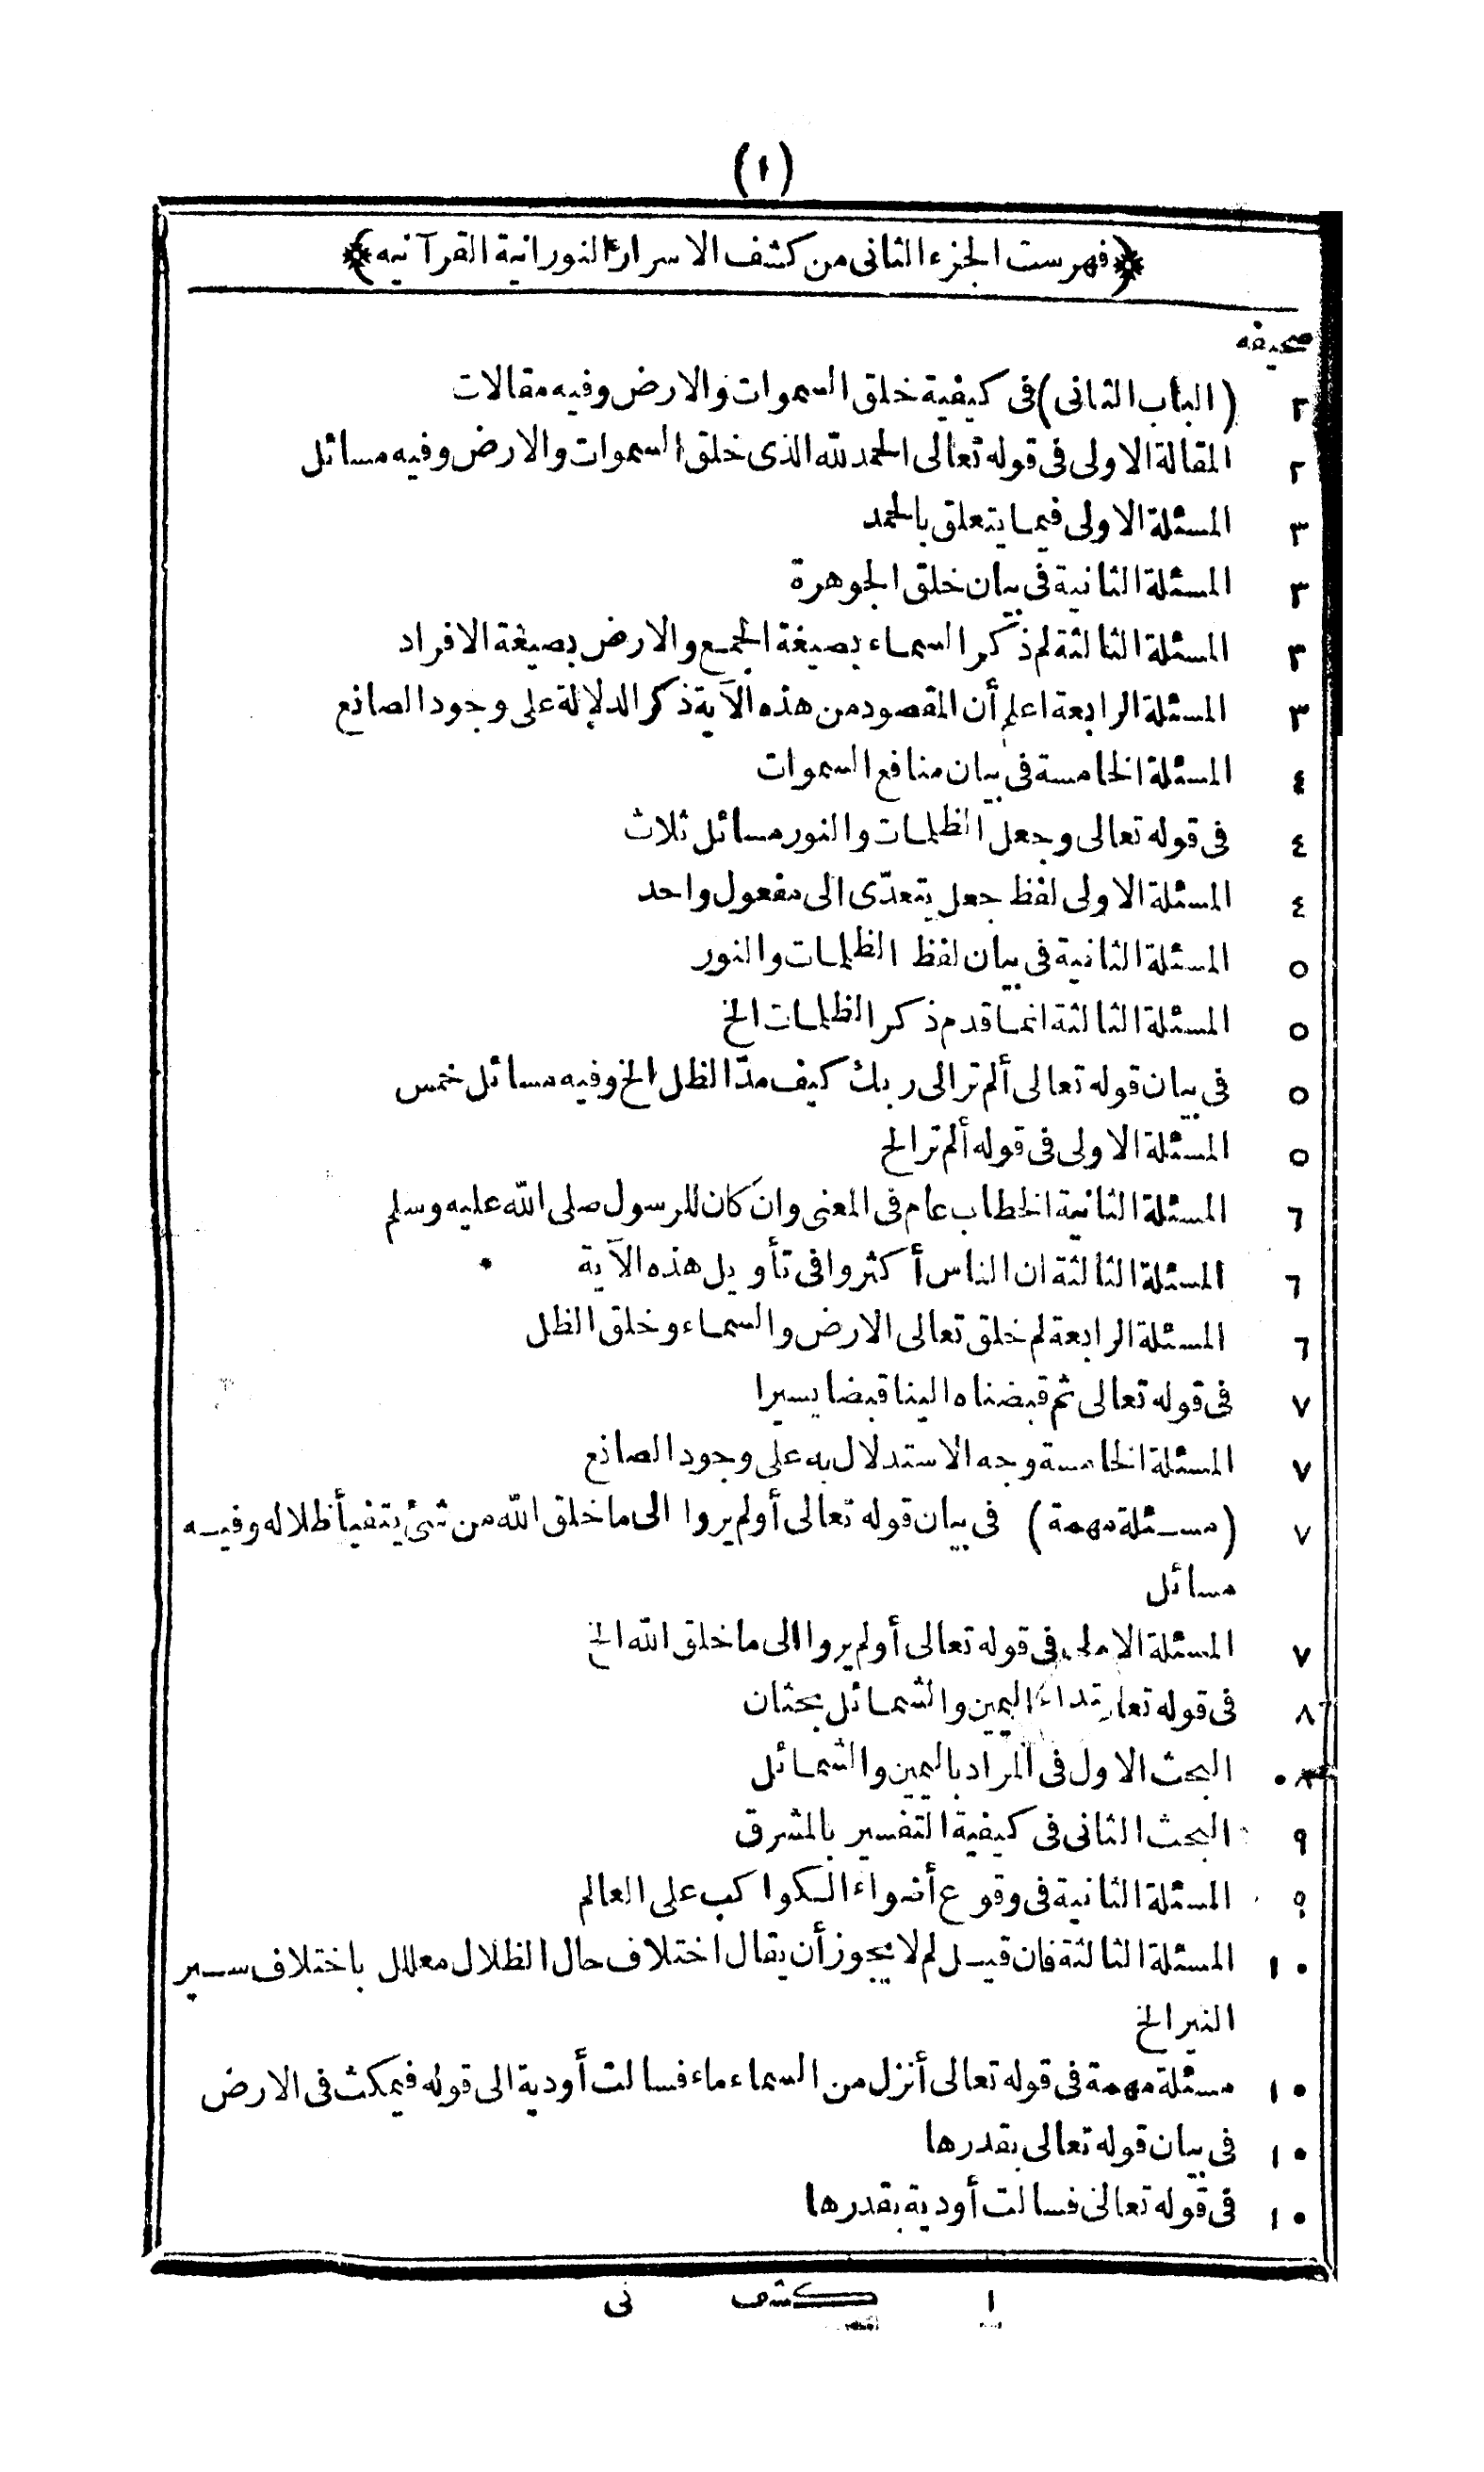 (١)
﴿فهرست الجزء الثانى من كشف الاسرار النورانية القرآنيه﴾
صحيفه
٢ (الباب الثانى) فى كيفية خلق السموات والارض وفيه مقالات
٢ المقالة الاولى فى قوله تعالى الحمد لله الذى خلق السموات والارض وفيه مسائل
٣ المسئلة الاولى فيما يتعلق بالحمد
٣ المسئلة الثانية فى بيان خلق الجوهرة
٣ المسئلة الثالثة لم ذكر السماء بصيغة الجمع والارض بصيغة الافراد
٣ المسئلة الرابعة اعلم أن المقصود من هذه الآية ذكر الدلالة على وجود الصانع
٤ المسئلة الخامسة فى بيان منافع السموات
٤ فى قوله تعالى وجعل الظلمات والنور مسائل ثلاث
٤ المسئلة الاولى لفظ جعل يتعدّى الى مفعول واحد
٥ المسئلة الثانية فى بيان لفظ الظلمات والنور
٥ المسئلة الثالثة انما قدم ذكر الظلمات الخ
٥ فى بيان قوله تعالى ألم تر الى ربك كيف مدّ الظل الخ وفيه مسائل خمس
٥ المسئلة الاولى فى قوله ألم تر الخ
٦ المسئلة الثانية الخطاب عام فى المعنى وان كان للرسول صلى الله عليه وسلم
٦ المسئلة الثالثة ان الناس أكثروا فى تأويل هذه الآية
٦ المسئلة الرابعة لم خلق تعالى الارض والسماء وخلق الظل
٧ فى قوله تعالى ثم قبضناه الينا قبضا يسيرا
٧ المسئلة الخامسة وجه الاستدلال به على وجود الصانع
٧ (مسئلة مهمة) فى بيان قوله تعالى أولم يروا الى ما خلق الله من شئ يتفيأ ظلاله وفيه
مسائل
٧ المسئلة الاولى فى قوله تعالى أولم يروا الى ما خلق الله الخ
٨ فى قوله اليمين والشمائل بحثان
٨ البحث الاول فى المراد باليمين والشمائل
٩ البحث الثانى فى كيفية التفسير بالمشرق
٩ المسئلة الثانية فى وقوع أضواء الكواكب على العالم
١٠ المسئلة الثالثة فان قيل لم لا يجوز أن يقال اختلاف حال الظلال معلل باختلاف سير
النير الخ
١٠ مسئلة مهمة فى قوله تعالى أنزل من السماء ماء فسالت أودية الى قوله فيمكث فى الارض
١٠ فى بيان قوله تعالى بقدرها
١٠ فى قوله تعالى فسالت أودية بقدرها
١ كشف نى